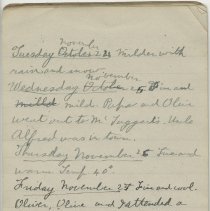 November
Tuesday October 24 Milder with
rain and snow
November
Wednesday October 25 Fine and
mild Papa and Olive
went out to Mc Taggart's. Uncle
Alfred was in town.
Thursday November 26 Fine and
warm Temp 40°.
Friday November 27 Fine and cool.
Oliver, Olive and I attended a